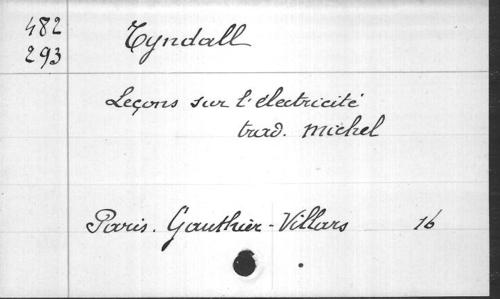 482 Tyndall
293
Leçons sur l'électricité
trad. Michel
Paris. Gauthier-Villars 16